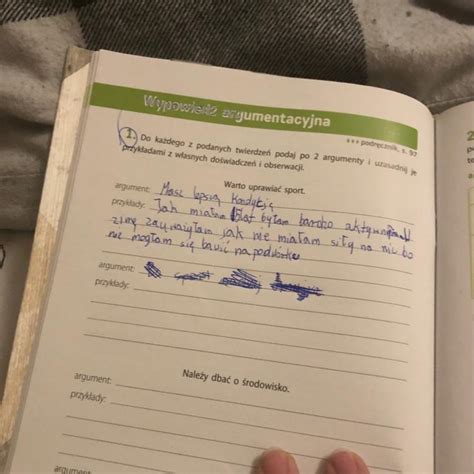 Wypowiedź argumentacyjna
podręcznik, s. 97
1. Do każdego z podanych twierdzeń podaj po 2 argumenty i uzasadnij je
przykładami z własnych doświadczeń i obserwacji.
Warto uprawiać sport.
argument: Masz lepszą kondycję
przykłady: Jak miałam lat byłam bardzo aktywna
zimę zauważyłam jak nie miałam siły na nic bo
nie mogłam się bawić na podwórku
argument:
przykłady:
Należy dbać o środowisko.
argument:
przykłady:
argument